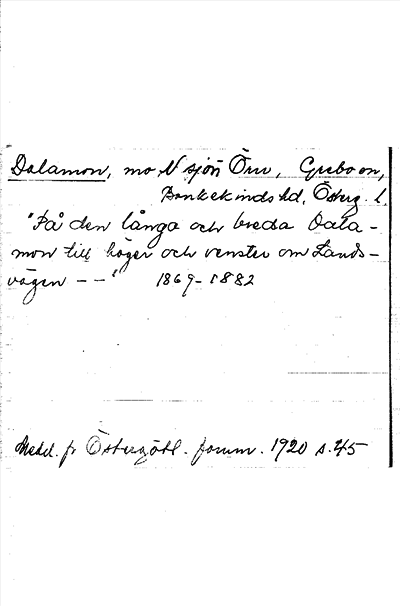 Dalamon, mo N sjön Ören, Grebo sn,
Bankekinds hd, Österg. l.
"På den långa och breda Dala-
mon till höger och venster om Lands-
vägen - - " 1869-1882
Medel. fr Östergötl. fornm. 1920 s. 45